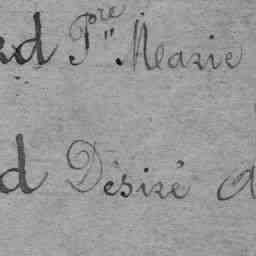 rd Pre" Marie
d Désiré